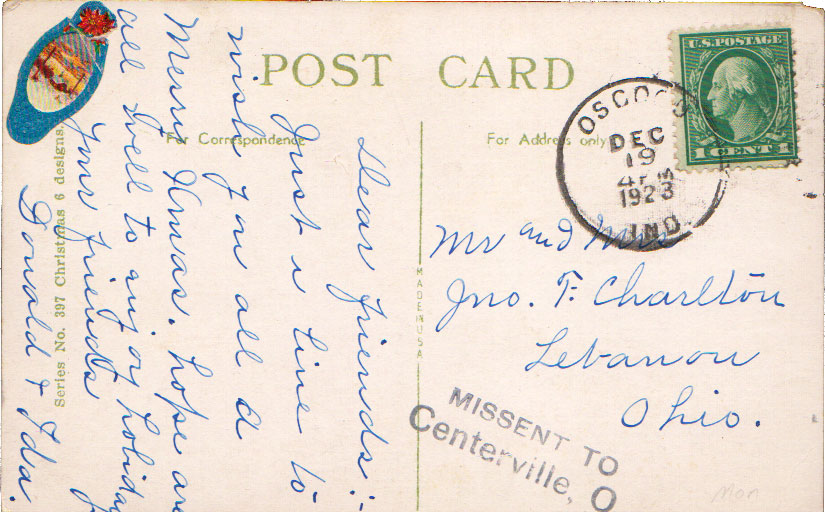 POST CARD
For Correspondence
For Address only
Dear friends:-
Just a line to
wish you all a
Merry Xmas. hope are
all well to enjoy holiday
Your friends
Donald & Ida.
Series No. 397 Christmas 6 designs.
MADE IN USA
U.S. POSTAGE
1 CENT 1
OSCEOLA
DEC
19
4 PM
1923
IND.
Mr and Mrs
Jno. F. Charlton
Lebanon
Ohio.
MISSENT TO
Centerville, O
Mon